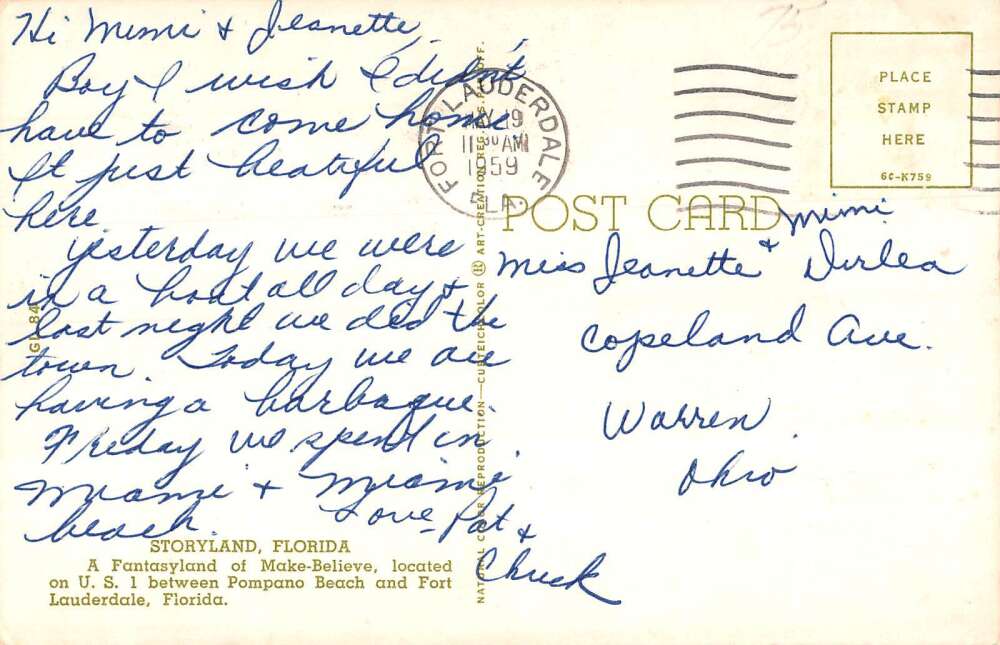 Hi Mimi & Jeanette,
Boy I wish I didn't
have to come home
It just beatiful
here.
Yesterday we were
in a boat all day &
last night we did the
town. Today we are
having a barbaque.
Friday we spent in
Miami & Miami
beach.
Love - Pat &
Chuck
STORYLAND, FLORIDA
A Fantasyland of Make-Believe, located
on U. S. 1 between Pompano Beach and Fort
Lauderdale, Florida.
GL 84
NATIONAL COLOR REPRODUCTION—CURTEICHCOLOR ® ART-CREATION REG. U.S. PAT. OFF.
FORT LAUDERDALE
19
11 30 AM
1959
FLA.
POST CARD
PLACE
STAMP
HERE
6C-K759
Miss Jeanette & Mimi
Copeland Ave.
Warren,
Ohio